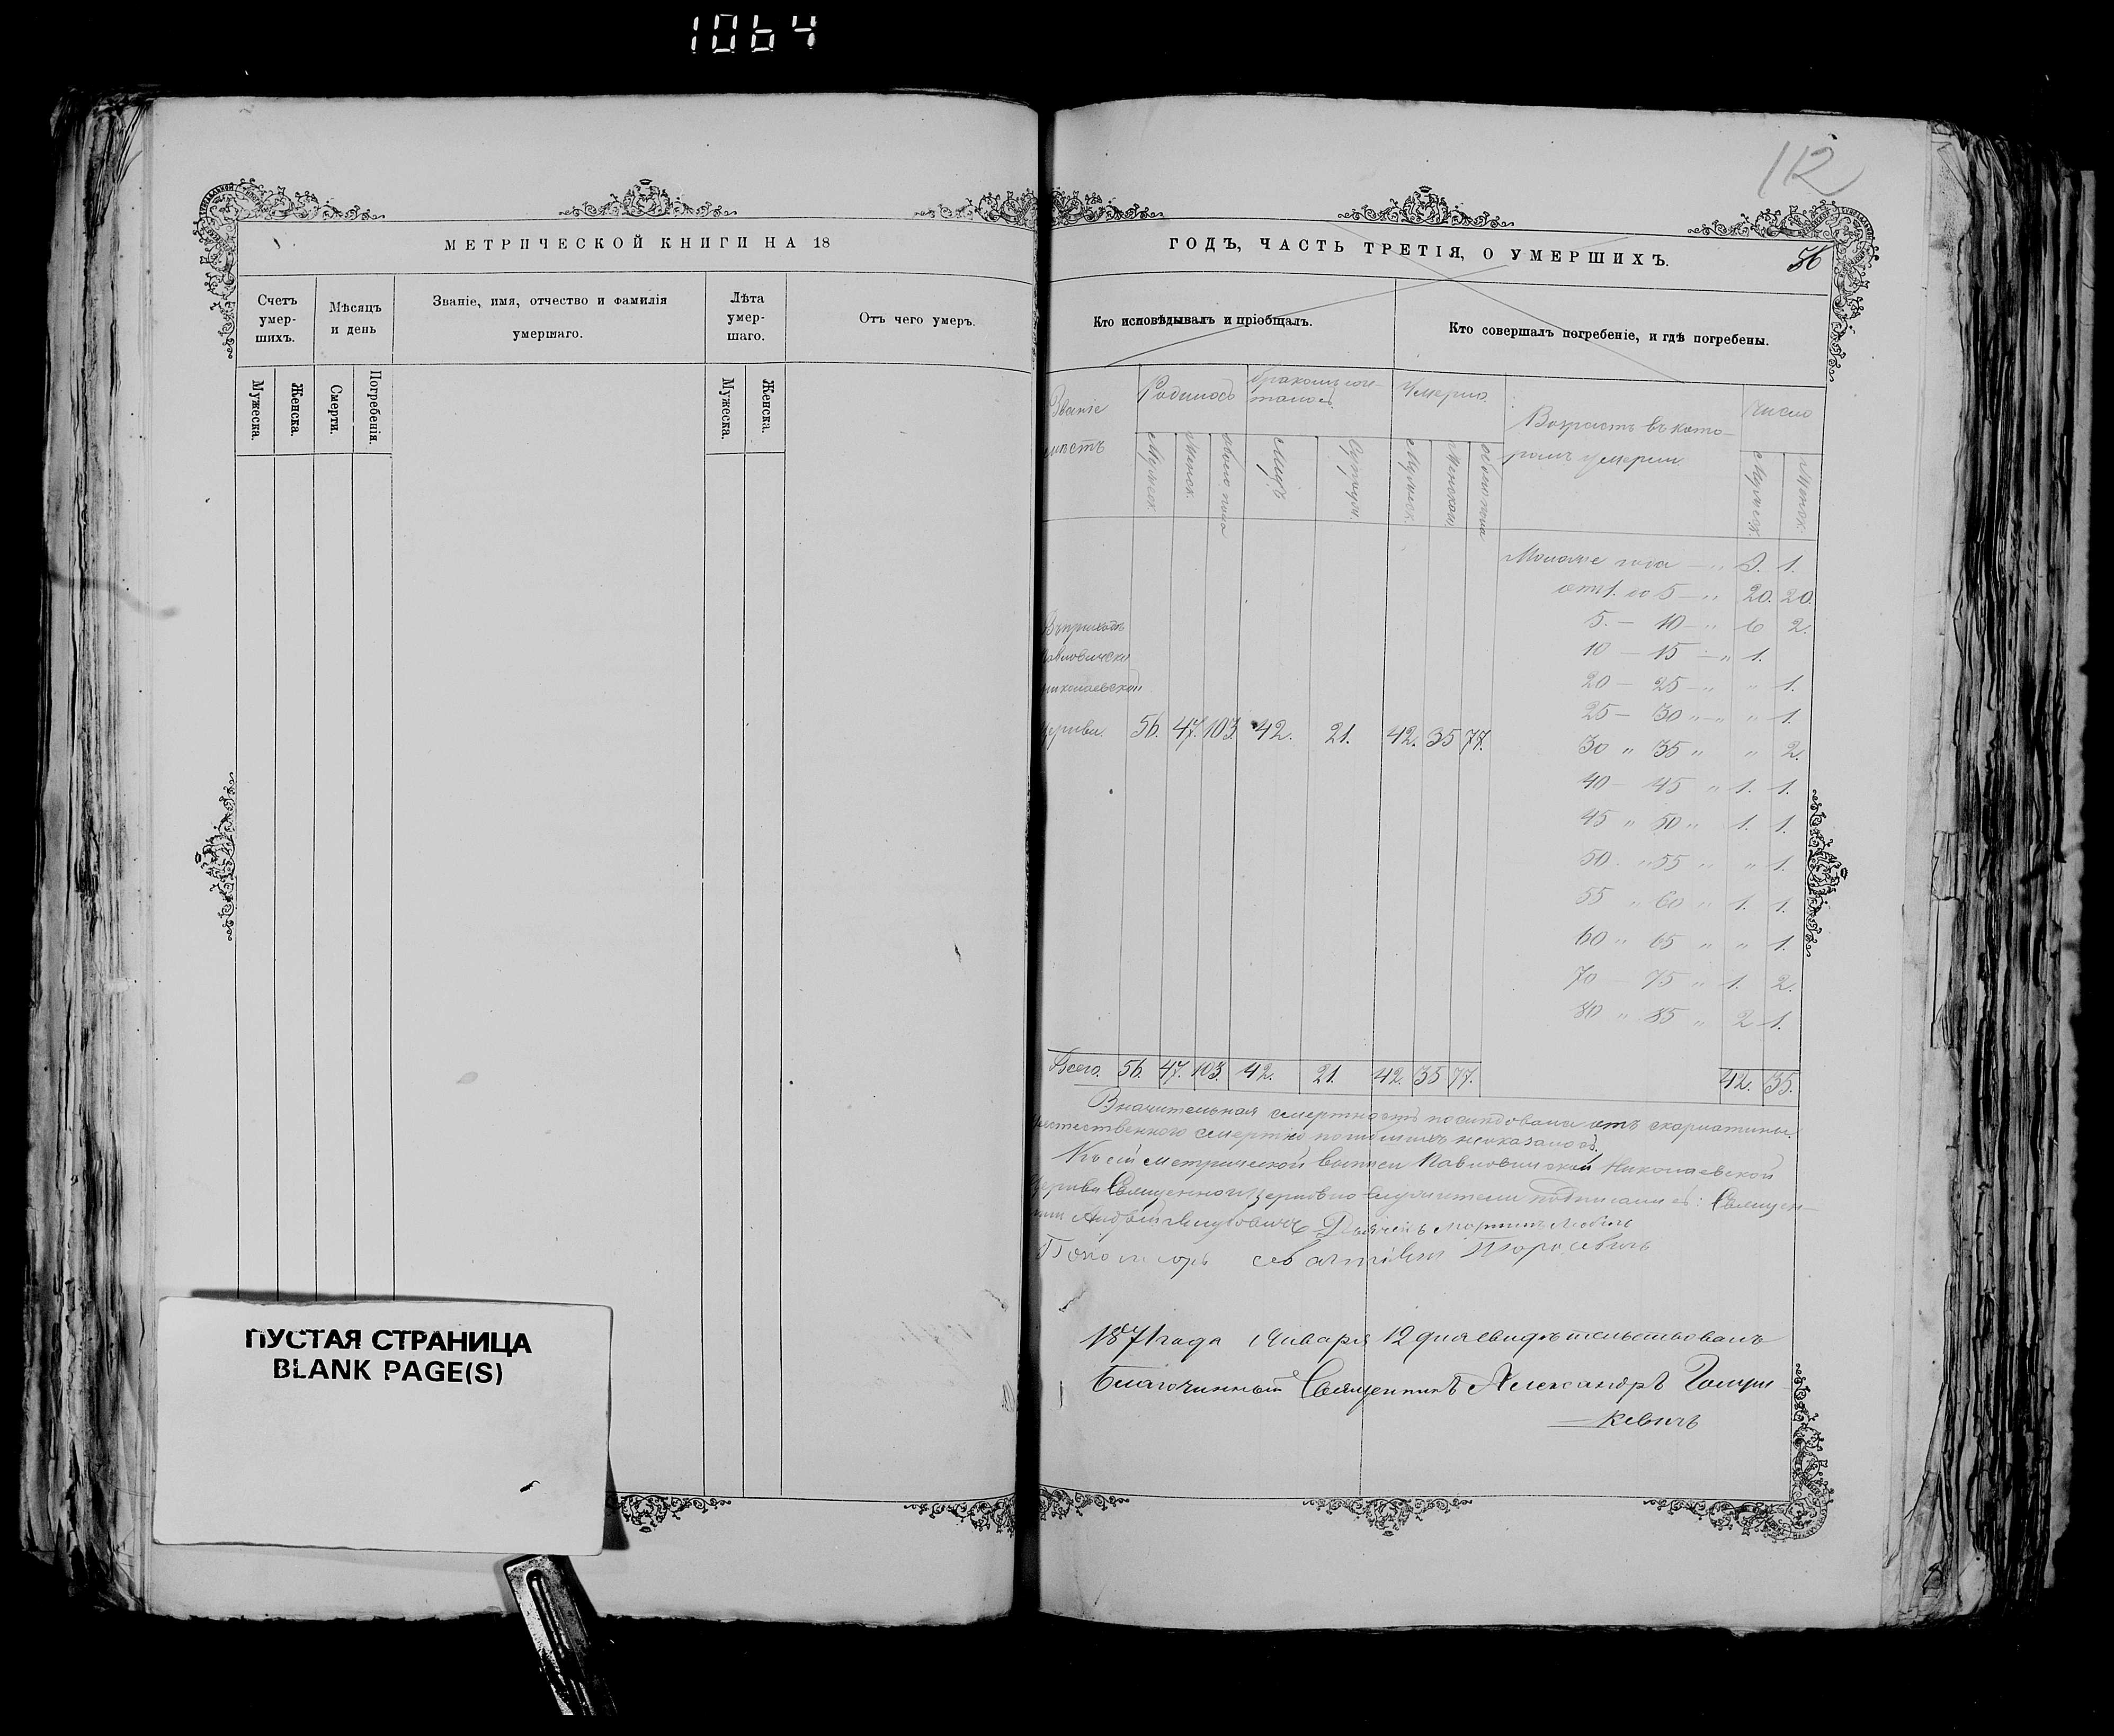 1064
112
МЕТРИЧЕСКОЙ КНИГИ НА 18
ГОДЪ, ЧАСТЬ ТРЕТІЯ, О УМЕРШИХЪ.
56
Счетъ умер-шихъ.
Мѣсяцъ и день
Званіе, имя, отчество и фамилія
умершаго.
Лѣта умер-шаго.
Отъ чего умеръ.
Мужеска.
Женска.
Смерти.
Погребенія.
Мужеска.
Женска.
Кто исповѣдывалъ и пріобщалъ.
Кто совершалъ погребеніе, и гдѣ погребены.
Званіе
мѣстъ
Родилось
Бракомъ соче-
талось
Умерло
Возрастъ въ кото-
ромъ умерли
Число
Мужеск.
Женск.
обоего пола
Лицъ
Супруж.
Мужеск.
Женскаго
обоего пола
Мужеск.
Женск.
Моложе года — " 9. 1.
отъ 1. до 5 — " 20. 20.
5. — 10 — " 6 2.
10 — 15 — " 1.
20 — 25 — " " 1.
25 — 30 " — " " 1.
30 " 35 " " 2.
40 — 45 " 1. 1.
45 " 50 " 1. 1.
50 " 55 " " 1.
55 " 60 " 1. 1.
60 " 65 " " 1.
70 — 75 " 1. 2.
80 " 85 " 2 1.
Въ приходѣ
Николаевской
Церкви. 56. 47. 103. 42. 21. 42. 35 77.
Всего. 56. 47. 103. 42. 21. 42. 35 77. 42. 35.
Значительная смертность послѣдовала отъ скарлатины.
смертію погибшихъ неоказалось.
Къ сей метрической выписи Павловичской Николаевской
Церкви Священно и Церковно служители подписались: Священ-
Мартинъ
1871 года Января 12 дня свидѣтельствовалъ
Благочинный Священникъ Александръ
кевичъ
ПУСТАЯ СТРАНИЦА
BLANK PAGE(S)